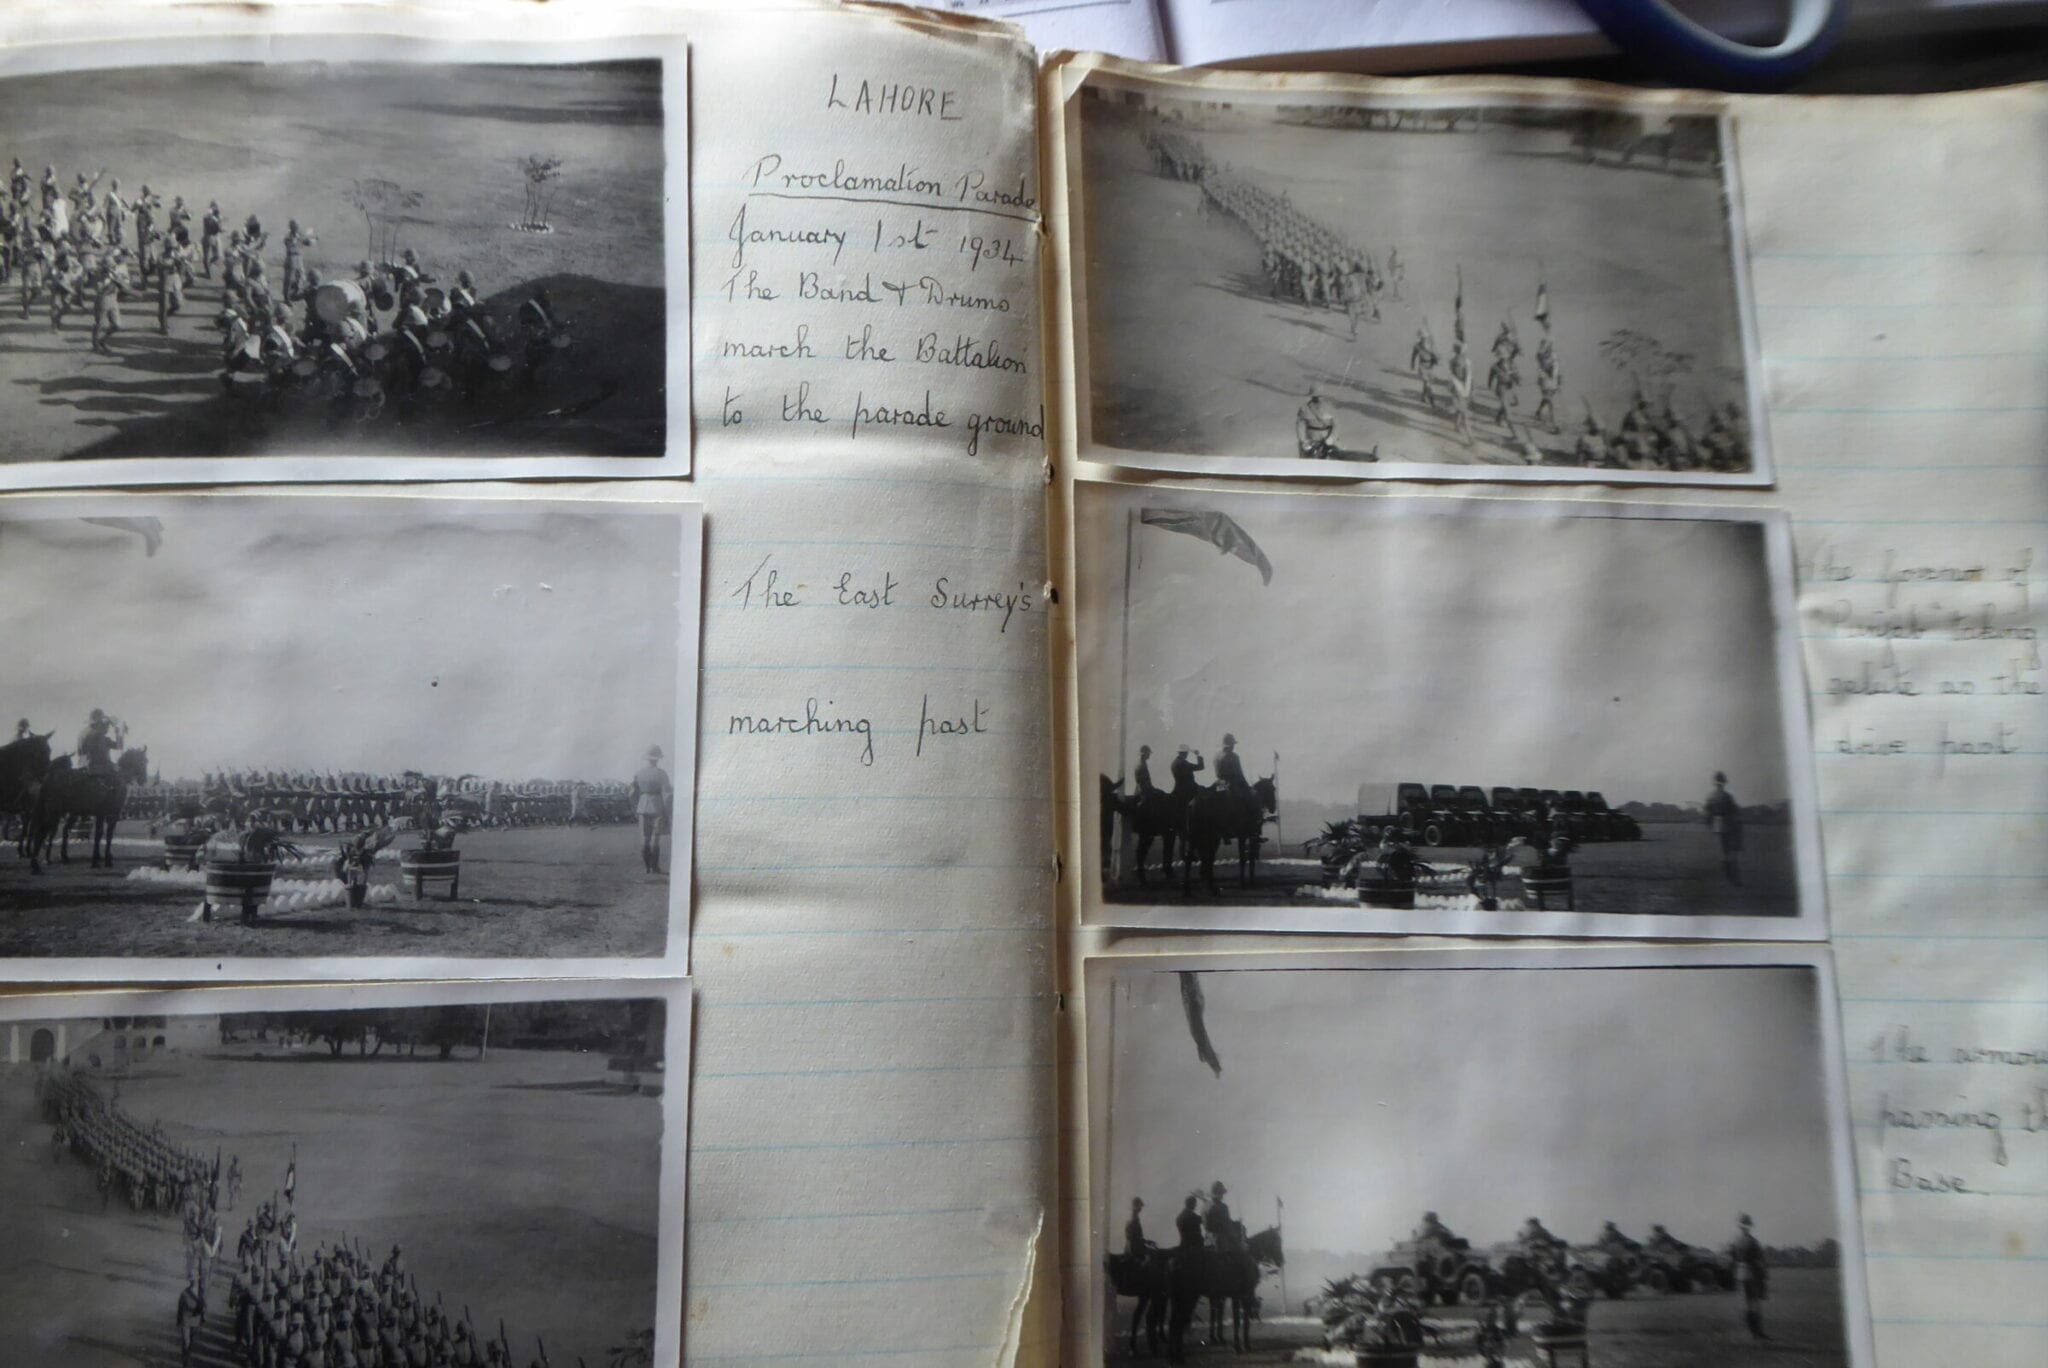 LAHORE
Proclamation Parade
January 1st 1934
The Band & Drums
march the Battalion
to the parade ground
The East Surrey's
marching past
The Govenor of
Punjab taking
salute as the
drive past
The armou
passing th
Base